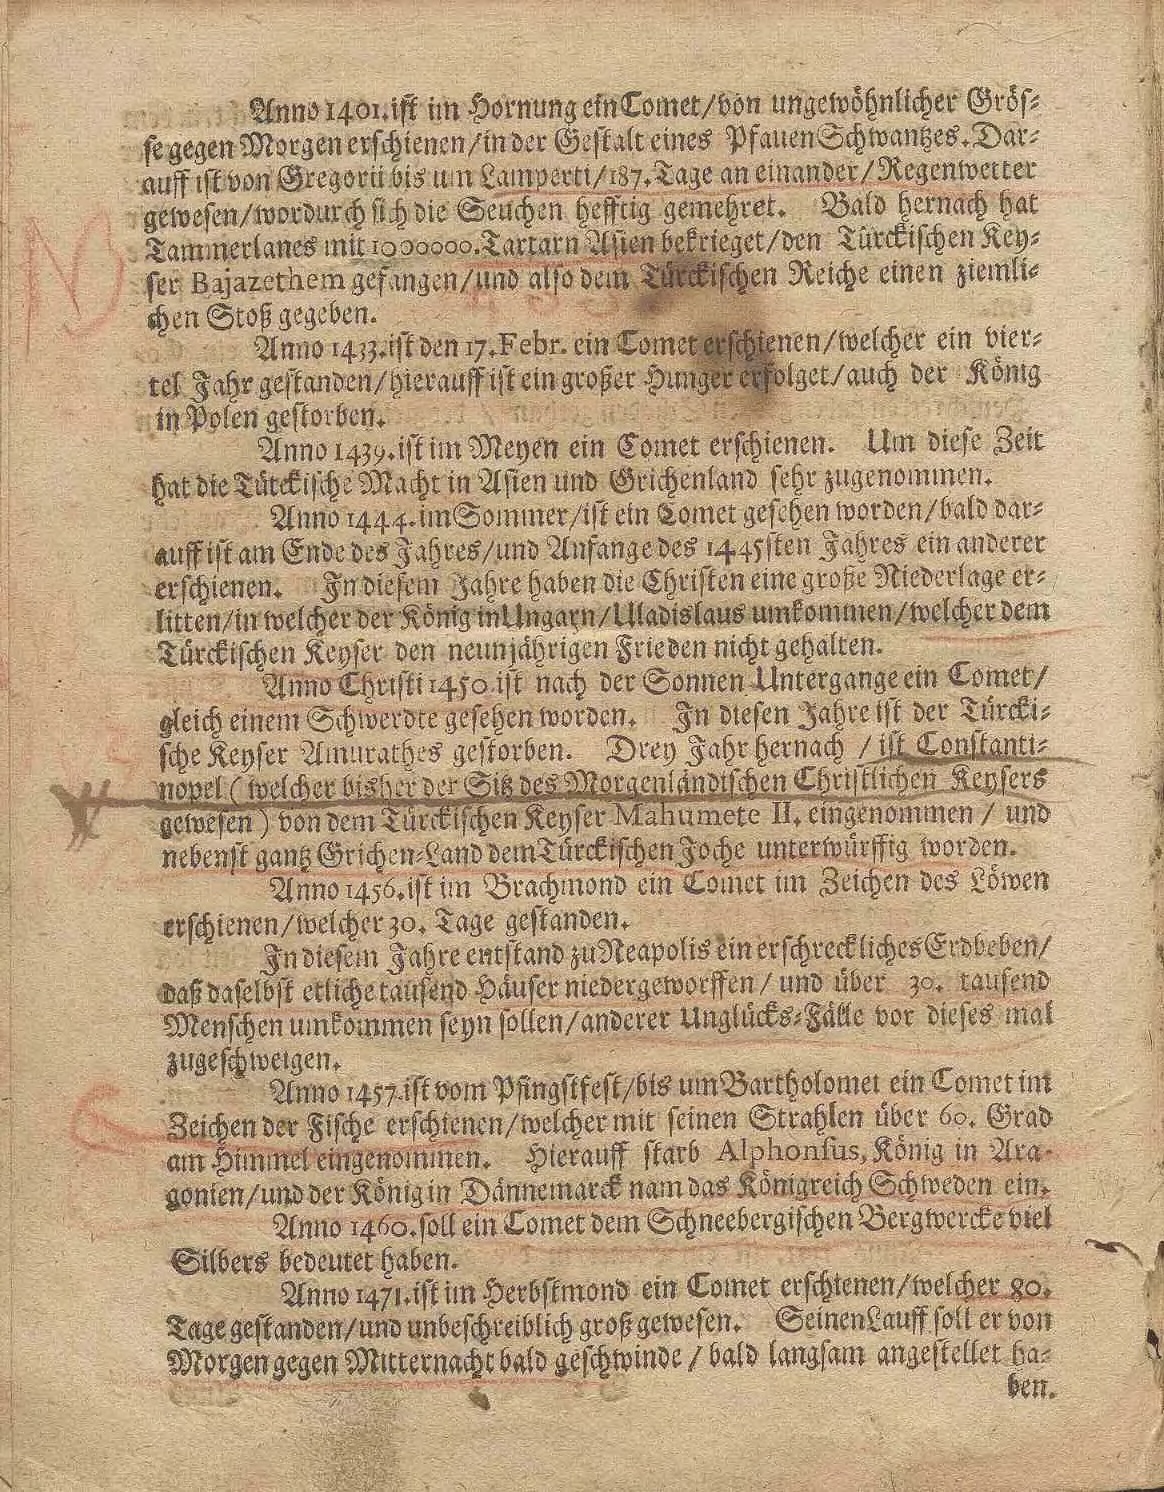 Anno 1401. ist im Hornung ein Comet/von ungewöhnlicher Grös-
se gegen Morgen erschienen/in der Gestalt eines Pfauen Schwantzes. Dar-
auff ist von Gregorii bis um Lamperti/187. Tage an einander/Regenwetter
gewesen/wordurch sich die Seuchen hefftig gemehret. Bald hernach hat
Tammerlanes mit 1000000. Tartarn Asien bekrieget/den Türckischen Key-
ser Bajazethem gefangen/und also dem Türckischen Reiche einen ziemli-
chen Stoß gegeben.
Anno 1433. ist den 17. Febr. ein Comet erschienen/welcher ein vier-
tel Jahr gestanden/hierauff ist ein großer Hunger erfolget/auch der König
in Polen gestorben.
Anno 1439. ist im Meyen ein Comet erschienen. Um diese Zeit
hat die Tütckische Macht in Asien und Grichenland sehr zugenommen.
Anno 1444. im Sommer/ist ein Comet gesehen worden/bald dar-
auff ist am Ende des Jahres/und Anfange des 1445sten Jahres ein anderer
erschienen. In diesem Jahre haben die Christen eine große Niederlage er-
litten/in welcher der König in Ungarn/Uladislaus umkommen/welcher dem
Türckischen Keyser den neunjährigen Frieden nicht gehalten.
Anno Christi 1450. ist nach der Sonnen Untergange ein Comet/
gleich einem Schwerdte gesehen worden. In diesen Jahre ist der Türcki-
sche Keyser Amurathes gestorben. Drey Jahr hernach / ist Constanti-
nopel ( welcher bisher der Sitz des Morgenländischen Christlichen Keysers
gewesen ) von dem Türckischen Keyser Mahumete II. eingenommen / und
nebenst gantz Grichen-Land dem Türckischen Joche unterwürffig worden.
Anno 1456. ist im Brachmond ein Comet im Zeichen des Löwen
erschienen/welcher 30. Tage gestanden.
In diesem Jahre entstand zu Neapolis ein erschreckliches Erdbeben/
daß daselbst etliche tausend Häuser niedergeworffen / und über 30. tausend
Menschen umkommen seyn sollen/anderer Unglücks-Fälle vor dieses mal
zugeschweigen.
Anno 1457. ist vom Pfingstfest/bis um Bartholomei ein Comet im
Zeichen der Fische erschienen/welcher mit seinen Strahlen über 60. Grad
am Himmel eingenommen. Hierauff starb Alphonsus, König in Ara-
gonien/und der König in Dännemarck nam das Königreich Schweden ein.
Anno 1460. soll ein Comet dem Schneebergischen Bergwercke viel
Silbers bedeutet haben.
Anno 1471. ist im Herbstmond ein Comet erschienen/welcher 80.
Tage gestanden/und unbeschreiblich groß gewesen. Seinen Lauff soll er von
Morgen gegen Mitternacht bald geschwinde / bald langsam angestellet ha-
ben.